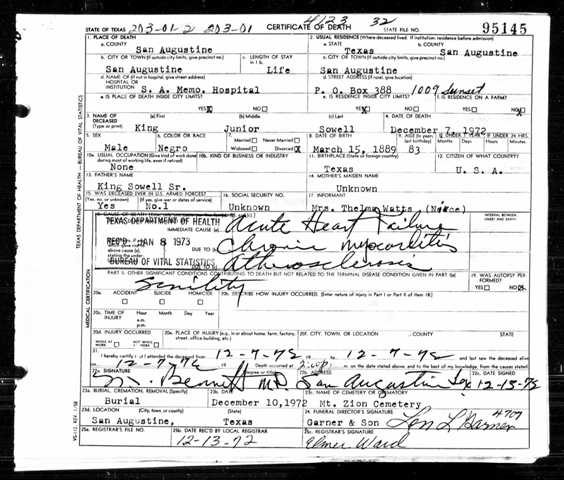 STATE OF TEXAS 203-01-2 203-01 CERTIFICATE OF DEATH H123 32 STATE FILE NO. 95145
1. PLACE OF DEATH
2. USUAL RESIDENCE (Where deceased lived. If institution: residence before admission)
a. COUNTY San Augustine
a. STATE Texas b. COUNTY San Augustine
b. CITY OR TOWN (If outside city limits, give precinct no.) San Augustine
c. LENGTH OF STAY in 1 b. Life
c. CITY OR TOWN (If outside city limits, give precinct no.) San Augustine
d. NAME OF (If not in hospital, give street address) HOSPITAL OR INSTITUTION S. A. Memo. Hospital
d. STREET ADDRESS (If rural, give location) P. O. Box 388 1009 Sunset
e. IS PLACE OF DEATH INSIDE CITY LIMITS? YES X NO
e. IS RESIDENCE INSIDE CITY LIMITS? YES X NO
f. IS RESIDENCE ON A FARM? YES NO X
3. NAME OF DECEASED (Type or print) (a) First King (b) Middle Junior (c) Last Sowell
4. DATE OF DEATH December 7, 1972
5. SEX Male
6. COLOR OR RACE Negro
7. Married Never Married Widowed Divorced X
8. DATE OF BIRTH March 15, 1889
83
IF UNDER 24 HRS. Months Days Hours Min.
10a. USUAL OCCUPATION (Give kind of work done during most of working life, even if retired) None
10b. KIND OF BUSINESS OR INDUSTRY
11. BIRTHPLACE (State or foreign country) Texas
12. CITIZEN OF WHAT COUNTRY? U. S. A.
13. FATHER'S NAME King Sowell Sr.
14. MOTHER'S MAIDEN NAME Unknown
15. WAS DECEASED EVER IN U.S. ARMED FORCES? (Yes, no, or unknown) (If yes, give war or dates of service) Yes No.1
16. SOCIAL SECURITY NO. Unknown
17. INFORMANT Mrs. Thelma Watts (Niece)
TEXAS DEPARTMENT OF HEALTH
REC'D JAN 8 1973
BUREAU OF VITAL STATISTICS
IMMEDIATE CAUSE (a) Acute Heart Failure
DUE TO Chronic myocarditis
Atherosclerosis
INTERVAL BETWEEN ONSET AND DEATH
PART II. OTHER SIGNIFICANT CONDITIONS CONTRIBUTING TO DEATH BUT NOT RELATED TO THE TERMINAL DISEASE CONDITION GIVEN IN PART I(a)
Senility
19. WAS AUTOPSY PERFORMED? YES NO X
20a. ACCIDENT SUICIDE HOMICIDE
20b. DESCRIBE HOW INJURY OCCURRED. (Enter nature of injury in Part I or Part II of item 18)
20c. TIME OF INJURY Hour a.m. p.m. Month Day Year
20d. INJURY OCCURRED WHILE AT WORK NOT WHILE AT WORK
20e. PLACE OF INJURY (e.g., in or about home, farm, factory, street, office building, etc.)
20f. CITY, TOWN, OR LOCATION COUNTY STATE
21. I hereby certify that I attended the deceased from 12-7-72 to 12-7-72 and last saw the deceased alive
on 12-7-72 Death occurred at on the date stated above; and to the best of my knowledge, from the causes stated.
22a. SIGNATURE Bennett MD
22b. ADDRESS San Augustine Tex
22c. DATE SIGNED 12-13-72
23a. BURIAL, CREMATION, REMOVAL (Specify) Burial
23b. DATE December 10, 1972
23c. NAME OF CEMETERY OR CREMATORY Mt. Zion Cemetery
23d. LOCATION (City, town, or county) (State) San Augustine, Texas
24. FUNERAL DIRECTOR'S SIGNATURE Garner & Son Lon L Garner 4707
25a. REGISTRAR'S FILE NO.
25b. DATE REC'D BY LOCAL REGISTRAR 12-13-72
25c. REGISTRAR'S SIGNATURE Elmer Ward
TEXAS DEPARTMENT OF HEALTH—BUREAU OF VITAL STATISTICS
MEDICAL CERTIFICATION
VS-112, REV. 1/58